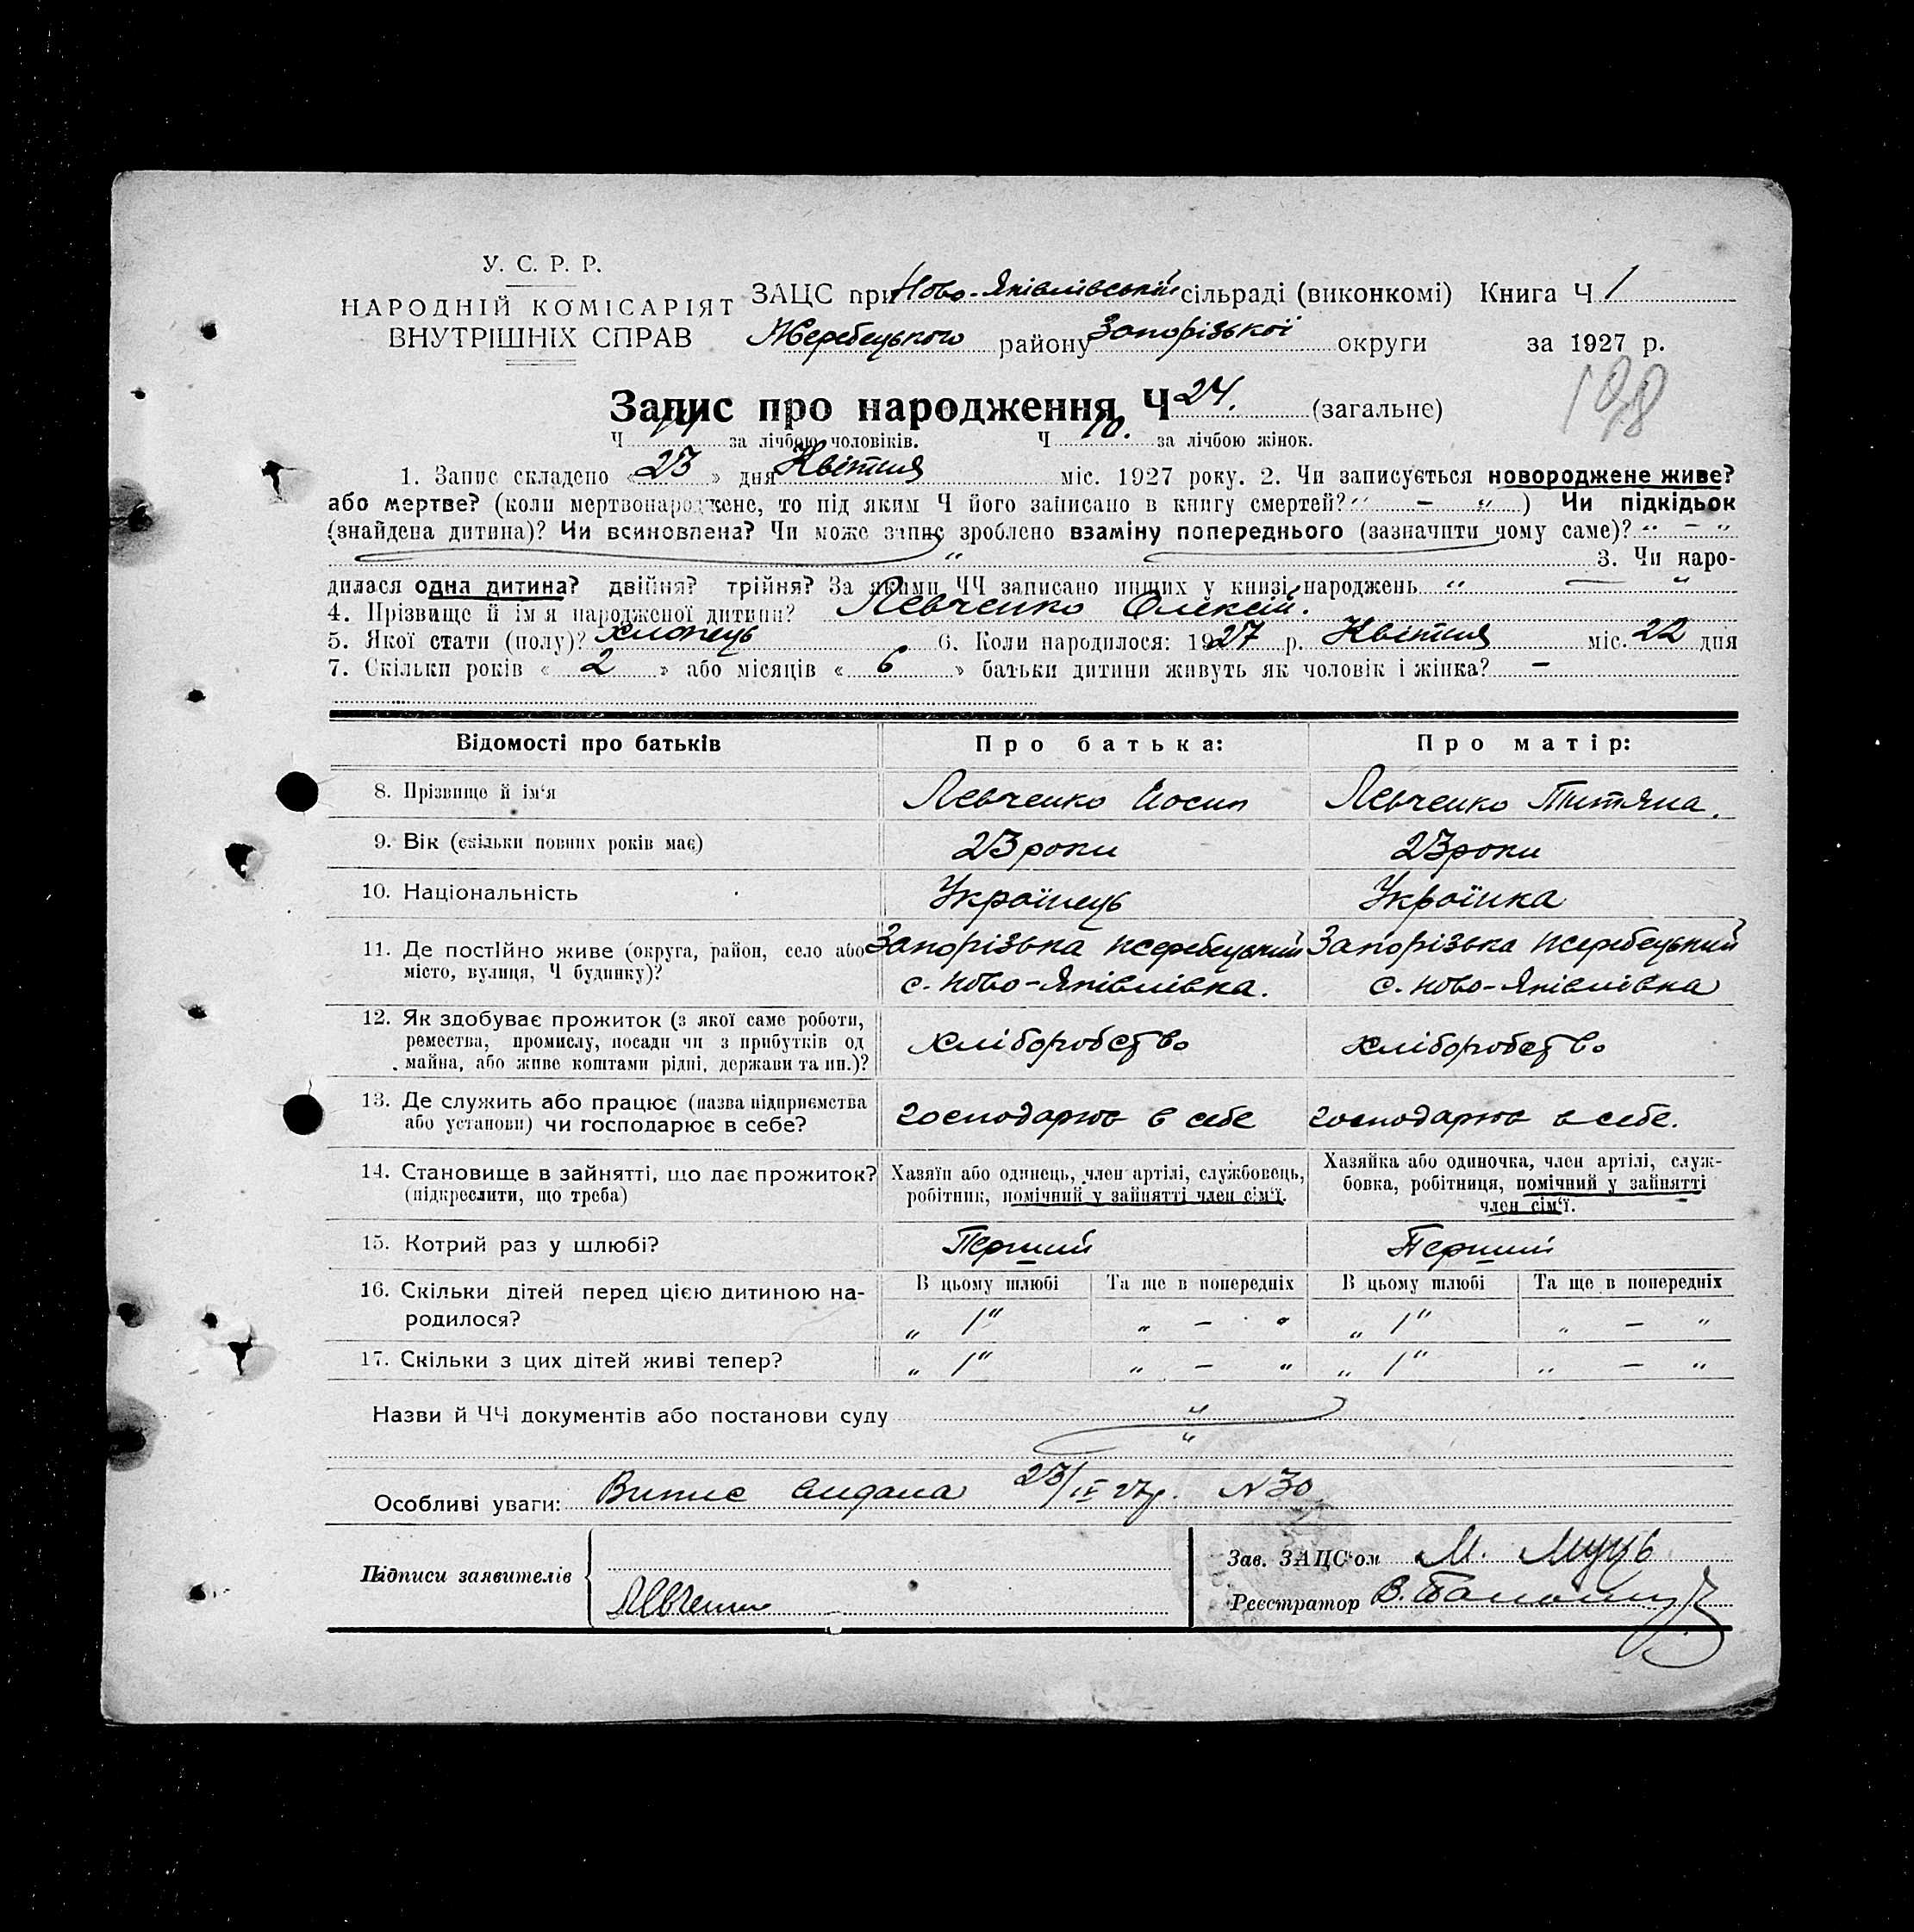 У. С. Р. Р.
НАРОДНІЙ КОМІСАРІЯТ
ВНУТРІШНІХ СПРАВ
ЗАЦС при Ново-Яківлівській сільраді (виконкомі) Книга Ч 1
Жеребецького району Запорізької округи за 1927 р.
198
Запис про народження Ч 24. (загальне)
Ч 14 за лічбою чоловіків. Ч 10. за лічбою жінок.
1. Запис складено « 23 » дня Квітня міс. 1927 року. 2. Чи записується новороджене живе?
або мертве? (коли мертвонароджене, то під яким Ч його записано в книгу смертей? „ — „ ) Чи підкідьок
(знайдена дитина)? Чи всиновлена? Чи може запис зроблено взаміну попереднього (зазначити чому саме)? „ — „
„ 3. Чи наро-
дилася одна дитина? двійня? трійня? За якими ЧЧ записано инших у книзі народжень „ — „
4. Прізвище й ім'я народженої дитини? Левченко Олексій.
5. Якої стати (полу)? хлопець 6. Коли народилося: 1927 р. Квітня міс. 22 дня
7. Скільки років « 2 » або місяців « 6 » батьки дитини живуть як чоловік і жінка? —
Відомості про батьків Про батька: Про матір:
8. Прізвище й ім'я Левченко Йосип Левченко Титяна.
9. Вік (скільки повних років має) 23 роки 23 роки
10. Національність Українець Українка
11. Де постійно живе (округа, район, село або Запорізька жеребецький Запорізька жеребецький
місто, вулиця, Ч будинку)? с. Ново-Яківлівка. с. Ново-Яківлівка
12. Як здобуває прожиток (з якої саме роботи,
ремества, промислу, посади чи з прибутків од хліборобство хліборобство
майна, або живе коштами рідні, держави та ин.)?
13. Де служить або працює (назва підприємства
або установи) чи господарює в себе? господарює в себе господарює в себе.
14. Становище в зайнятті, що дає прожиток? Хазяїн або одинець, член артілі, службовець, Хазяйка або одиночка, член артілі, служ-
(підкреслити, що треба) робітник, помічний у зайнятті член сім'ї. бовка, робітниця, помічний у зайнятті
член сім'ї.
15. Котрий раз у шлюбі? Перший Перший
16. Скільки дітей перед цією дитиною на- В цьому шлюбі Та ще в попередніх В цьому шлюбі Та ще в попередніх
родилося? „ 1 " „ — „ „ 1 " „ — „
17. Скільки з цих дітей живі тепер? „ 1 " „ — „ „ 1 " „ — „
Назви й ЧЧ документів або постанови суду „
„
Особливі уваги: Випис видана 23/IV 27р. N 30
Підписи заявителів Левченко
Зав. ЗАЦС'ом М.
Реєстратор В.